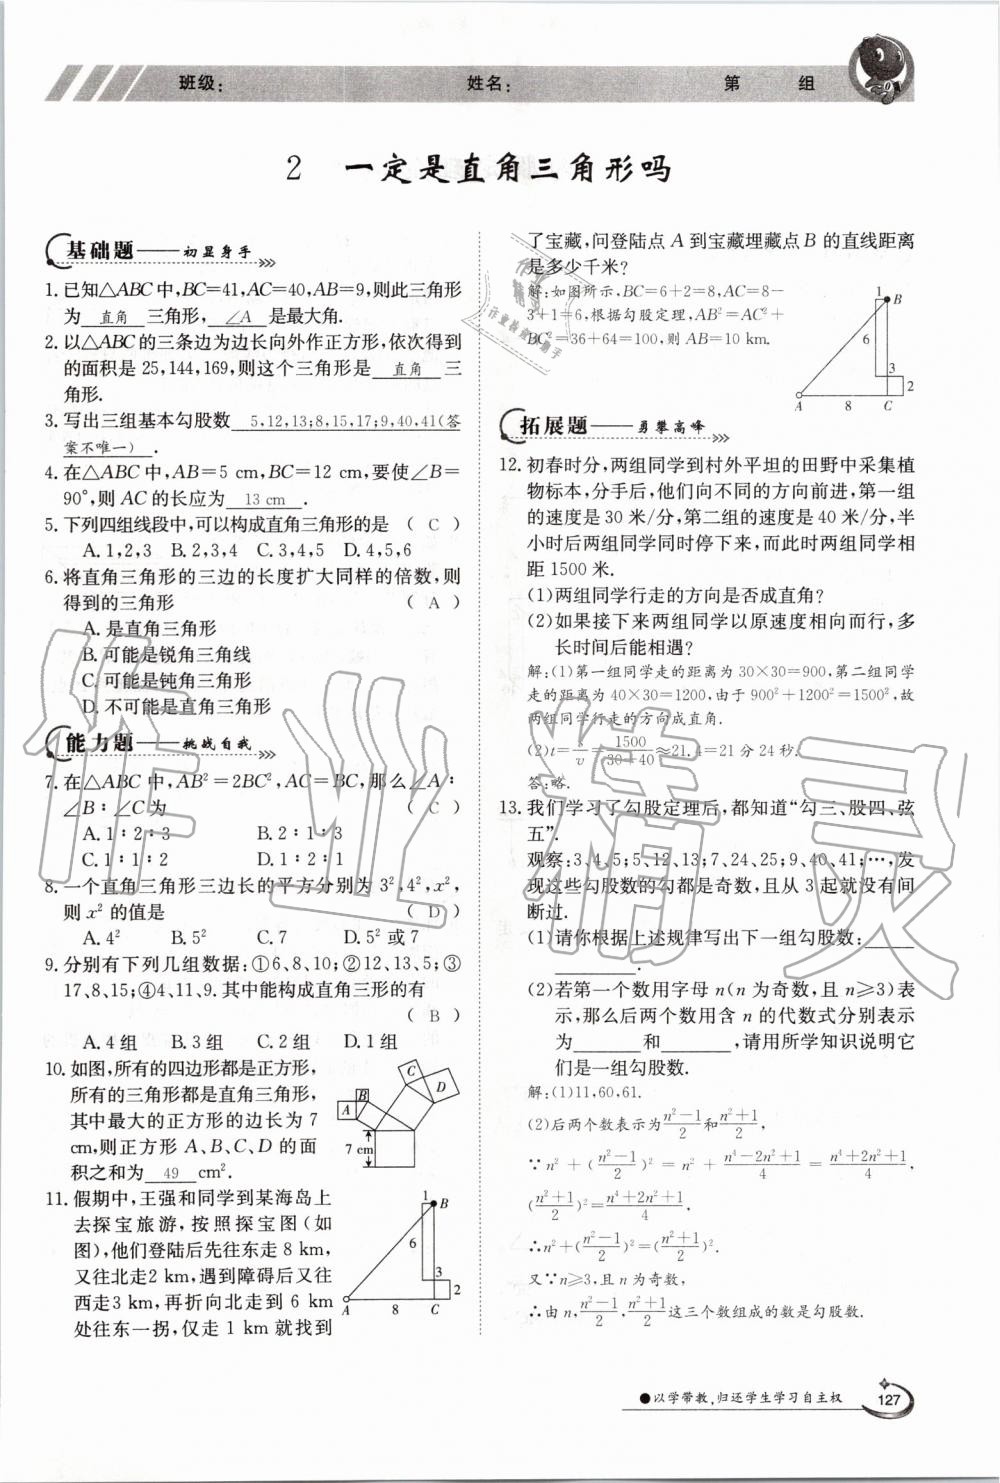 班级:
姓名:
第 组
2 一定是直角三角形吗
基础题——初显身手
1. 已知△ABC中,BC=41,AC=40,AB=9,则此三角形
为 直角 三角形, ∠A 是最大角.
2. 以△ABC的三条边为边长向外作正方形,依次得到
的面积是25,144,169,则这个三角形是 直角 三
角形.
3. 写出三组基本勾股数 5,12,13;8,15,17;9,40,41(答
案不唯一) .
4. 在△ABC中,AB=5 cm,BC=12 cm,要使∠B=
90°,则AC的长应为 13 cm .
5. 下列四组线段中,可以构成直角三角形的是 ( C )
A. 1,2,3 B. 2,3,4 C. 3,4,5 D. 4,5,6
6. 将直角三角形的三边的长度扩大同样的倍数,则
得到的三角形 ( A )
A. 是直角三角形
B. 可能是锐角三角线
C. 可能是钝角三角形
D. 不可能是直角三角形
能力题——挑战自我
7. 在△ABC中,AB²=2BC²,AC=BC,那么∠A∶
∠B∶∠C为 ( C )
A. 1∶2∶3 B. 2∶1∶3
C. 1∶1∶2 D. 1∶2∶1
8. 一个直角三角形三边长的平方分别为3²,4²,x²,
则x²的值是 ( D )
A. 4² B. 5² C. 7 D. 5²或7
9. 分别有下列几组数据:①6、8、10;②12、13、5;③
17、8、15;④4、11、9.其中能构成直角三形的有
( B )
A. 4组 B. 3组 C. 2组 D. 1组
10. 如图,所有的四边形都是正方形,
所有的三角形都是直角三角形,
其中最大的正方形的边长为7
cm,则正方形A、B、C、D的面
积之和为 49 cm².
A
B
C
D
7 cm
11. 假期中,王强和同学到某海岛上
去探宝旅游,按照探宝图(如
图),他们登陆后先往东走8 km,
又往北走2 km,遇到障碍后又往
西走3 km,再折向北走到6 km
处往东一拐,仅走1 km就找到
1
B
6
3
2
A 8 C
了宝藏,问登陆点A到宝藏埋藏点B的直线距离
是多少千米?
解:如图所示,BC=6+2=8,AC=8-
3+1=6,根据勾股定理,AB²=AC²+
BC²=36+64=100,则AB=10 km.
1
B
6
3
2
A 8 C
拓展题——勇攀高峰
12. 初春时分,两组同学到村外平坦的田野中采集植
物标本,分手后,他们向不同的方向前进,第一组
的速度是30米/分,第二组的速度是40米/分,半
小时后两组同学同时停下来,而此时两组同学相
距1500米.
(1)两组同学行走的方向是否成直角?
(2)如果接下来两组同学以原速度相向而行,多
长时间后能相遇?
解:(1)第一组同学走的距离为30×30=900,第二组同学
走的距离为40×30=1200,由于900²+1200²=1500²,故
两组同学行走的方向成直角.
(2)t=s/v=1500/(30+40)≈21.4=21分24秒.
答:略.
13. 我们学习了勾股定理后,都知道“勾三、股四、弦
五”.
观察:3、4、5;5、12、13;7、24、25;9、40、41;…,发
现这些勾股数的勾都是奇数,且从3起就没有间
断过.
(1)请你根据上述规律写出下一组勾股数:______
______.
(2)若第一个数用字母n(n为奇数,且n≥3)表
示,那么后两个数用含n的代数式分别表示
为______和______,请用所学知识说明它
们是一组勾股数.
解:(1)11,60,61.
(2)后两个数表示为(n²-1)/2和(n²+1)/2,
∵n²+((n²-1)/2)²=n²+(n⁴-2n²+1)/4=(n⁴+2n²+1)/4,
((n²+1)/2)²=(n⁴+2n²+1)/4.
∴n²+((n²-1)/2)²=((n²+1)/2)².
又∵n≥3,且n为奇数,
∴由n,(n²-1)/2,(n²+1)/2这三个数组成的数是勾股数.
●以学带教,归还学生学习自主权
127
作业精灵